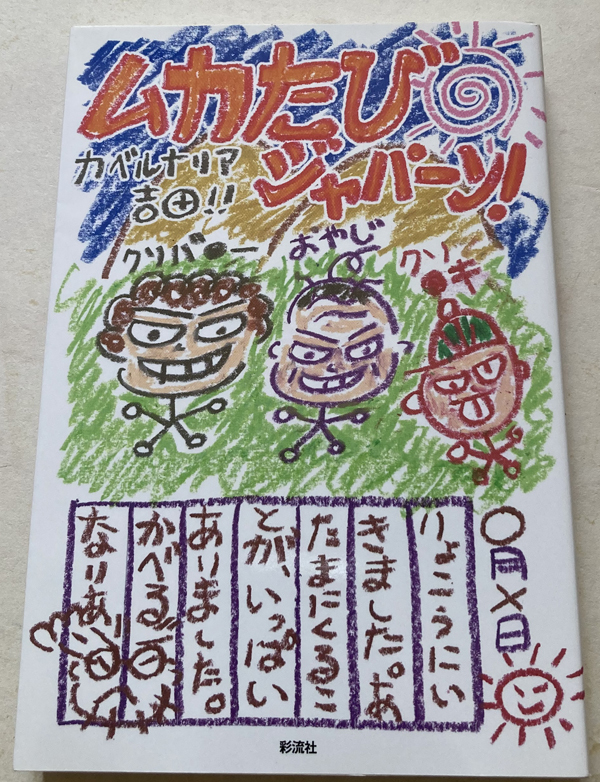 ムカたび
ジャパーン!
カベルナリア
吉田!!
クソバ●ー
おやじ
クソ●キ
〇月×日
りょこうにい
きました。あ
たまにくるこ
とが、いっぱい
ありました。
かべる
なりあ
彩流社